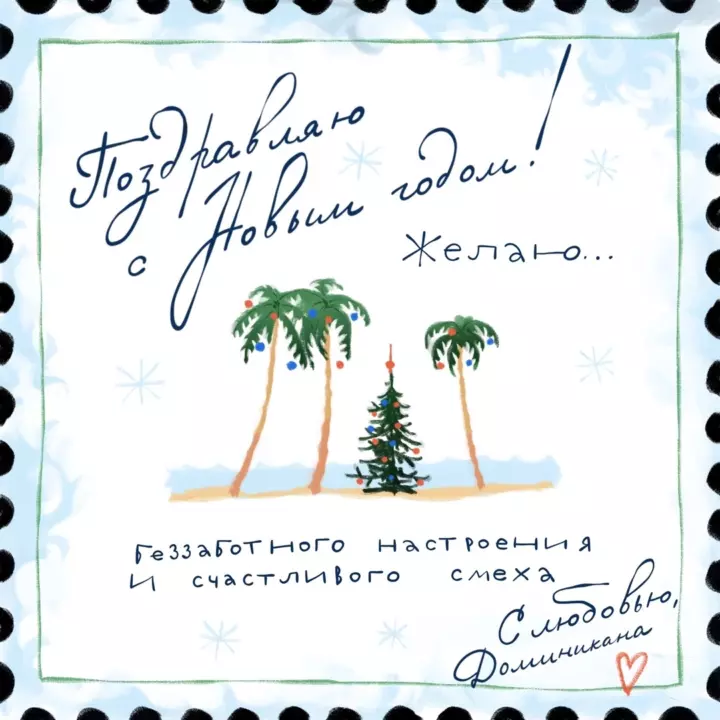 Поздравляю
с Новым годом!
Желаю...
беззаботного настроения
и счастливого смеха
С любовью,
Доминикана